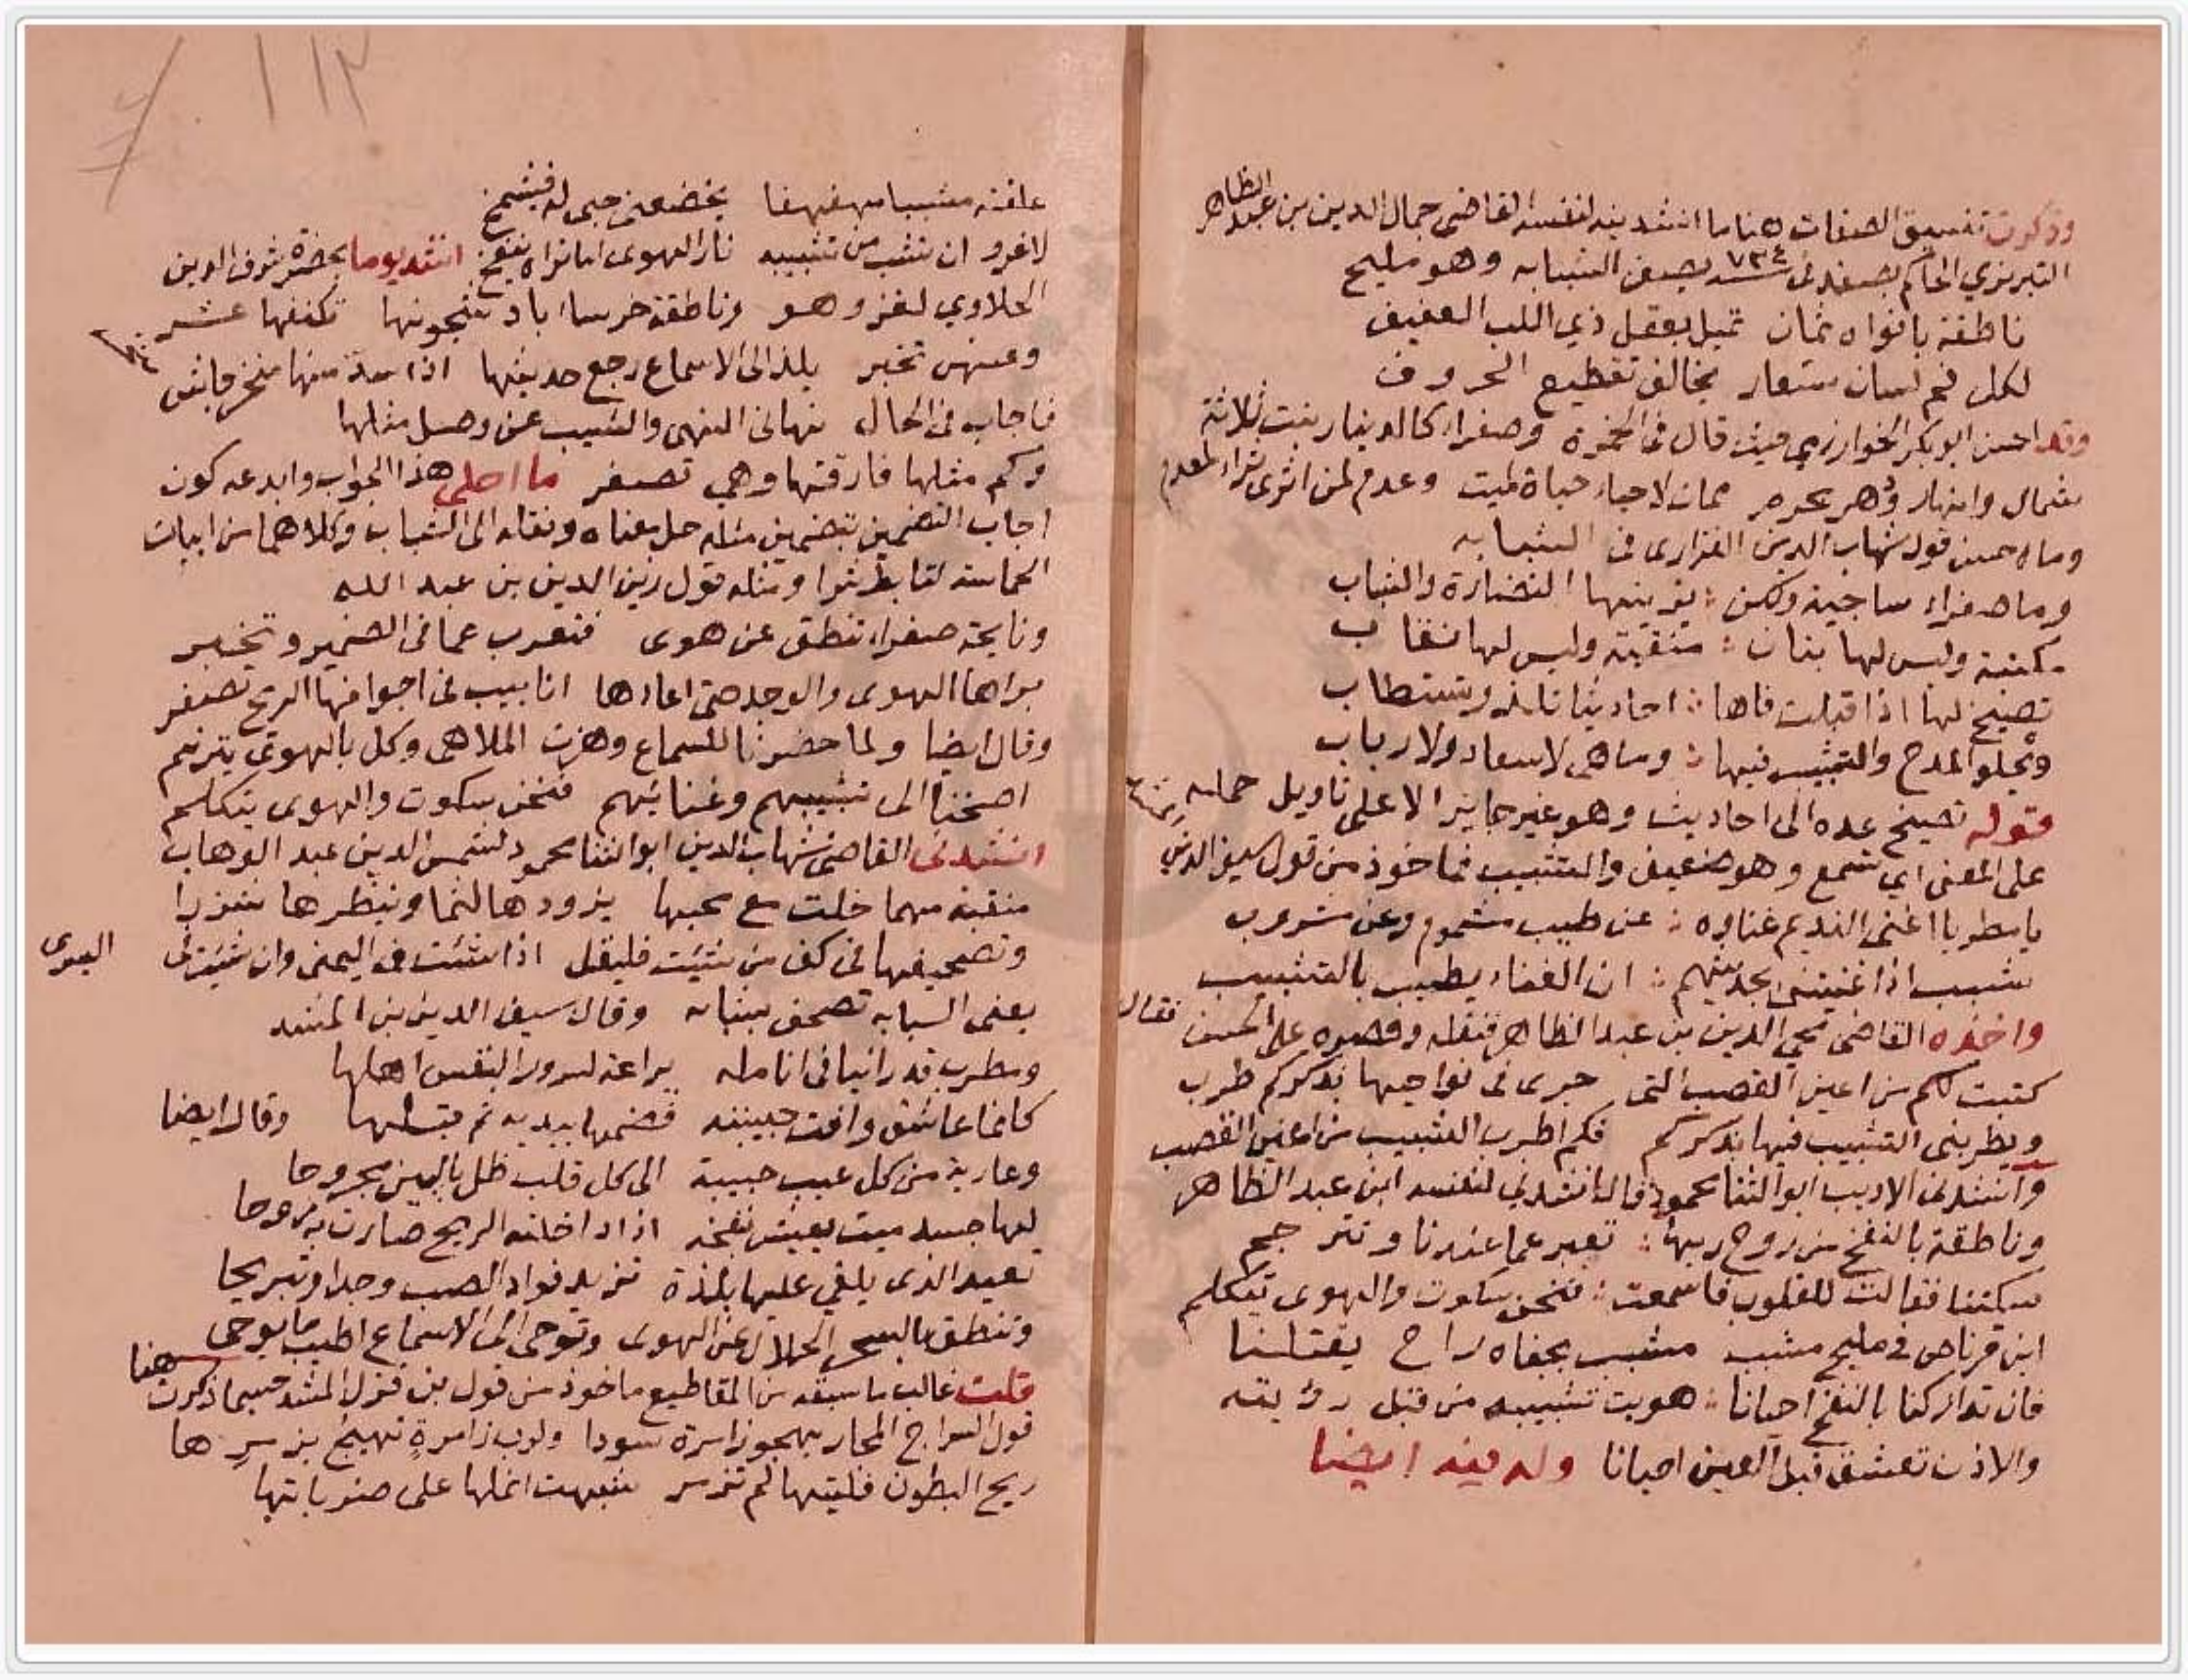 وذكرت تنسيق الصفات هنا ما انشدنيه لنفسه القاضي جمال الدين بن عبد الظاهر
التبريزي الحاكم بصفد في سنة ٧٣٤ يصف الشبابه وهو مليح
ناطقة بافواه ثمان تميل بعقل ذي اللب العفيف
لكل فم لسان مستعار يخالف تقطيع الحروف
وقد احسن ابو بكر الخوارزمي حيث قال في الخمرة وصفراء كالدينار بنت ثلاثة
شمال وانهار ودهر محرم ممات لاحياء حياة لميت وعدم لمن اثرى ثراء لمعدم
وما احسن قول شهاب الدين الفزاري في الشبابه
وما صفراء ساجية ولكن : يزينها النضارة والشباب
مكتبة وليس لها بنان : منقبة وليس لها نقاب
تصيخ لها اذا قبلت فاها : احاديثا تلذ وتستطاب
ويحلو المدح والتشبيب فيها : وما هي لا سعاد ولا رباب
قوله تصيخ عده الى احاديث وهو غير جايز الا على تاويل حمله
على المعنى اي تسمع وهو ضعيف والتشبيب فماخوذ من قول سيف الدين
يا مطربا اغنى النديم غناوه : عن طيب مشموم وعن مشروب
شبب اذا غنيتني بحديثهم : ان الغناء يطيب بالتشبيب
واخذه القاضي محي الدين بن عبد الظاهر فنقله وقصره على الحسن فقال
كتبت لكم من اعين القصب التي جرى في نواحيها بذكركم طرب
ويطربني التشبيب فيها بذكركم فكم اطرب التشبيب من اعين القصب
وانشدني الاديب ابو الثنا محمود قال انشدني لنفسه ابن عبد الظاهر
وناطقة بالنفخ من روح ربها : تعبر عما عندنا وتترجم
سكتنا فقالت للقلوب فاسمعت : فنحن سكوت والهوى يتكلم
ابن قرناص في مليح مشبب مشبب بجفاه راح يقتلنا
فان تداركنا بالنفخ احيانا : هويت تشبيبه من قبل رؤيته
والاذن تعشق قبل العين احيانا وله فيه ايضا
١١٢
علقته مشببا مهفهفا يخضع حبي له فيشمخ
لا غرو ان شب من تشبيبه نار الهوى اما تراه ينفخ انشد يوما بحضرة شرف الدين
الحلاوي لغز وهو وناطقة خرساء باد شجونها تكنفها عشر
وعنهن تخبر يلذ الى الاسماع رجع حديثها اذا سد منها منخر جاش
فاجاب في الحال نهاني النهى والشيب عن وصل مثلها
وكم مثلها فارقتها وهي تصفر ما احلى هذا الجواب وابدعه كون
اجاب التضمين بتضمين مثله حل معناه ونقله الى الشباب وكلاهما من ابيات
الحماسة لتابط شرا ومثله قول زين الدين بن عبد الله
ونايحة صفراء تنطق عن هوى فتعرب عما في الضمير وتخبر
براها الهوى والوجد حتى اعادها انابيب في اجوافها الريح تصفر
وقال ايضا ولما حضرنا للسماع وهزت الملاهي وكل بالهوى يترنم
اصخنا الى تشبيبهم وغنائهم فنحن سكوت والهوى يتكلم
انشدني القاضي شهاب الدين ابو الثنا محمود لشمس الدين عبد الوهاب
منقبة مهما خلت مع محبها يزودها لثما وينظرها شزرا
وتصحيفها في كف من شئت فليقل اذا شئت في اليمنى وان شئت في اليسرى
يعني الشبابه تصحف سبابه وقال سيف الدين بن المشد
ومطرب قد راينا في انامله يراعة لسرور النفس اهلها
كانما عاشق وافت حبيبته فضمها بيديه ثم قبلها وقال ايضا
وعارية من كل عيب حبيبة الى كل قلب ظل بالبين مجروحا
لها جسد ميت يعيش بنفخة اذا داخلته الريح صارت به روحا
تعيد الذي يلقي عليها بلذة تزيد فواد الصب وجدا وتبريحا
وتنطق بالسحر الحلال عن الهوى وتوحي الى الاسماع اطيب ما يوحى
قلت غالب ما سبقه من المقاطيع ماخوذ من قول بن قزل المشد حيما ذكرت هنا
قول السراج المحار يهجو زامرة سودا ولرب زامرة تهيج بزمرها
ريح البطون فليتها لم تزمر شبهت انملها على صنرباتها